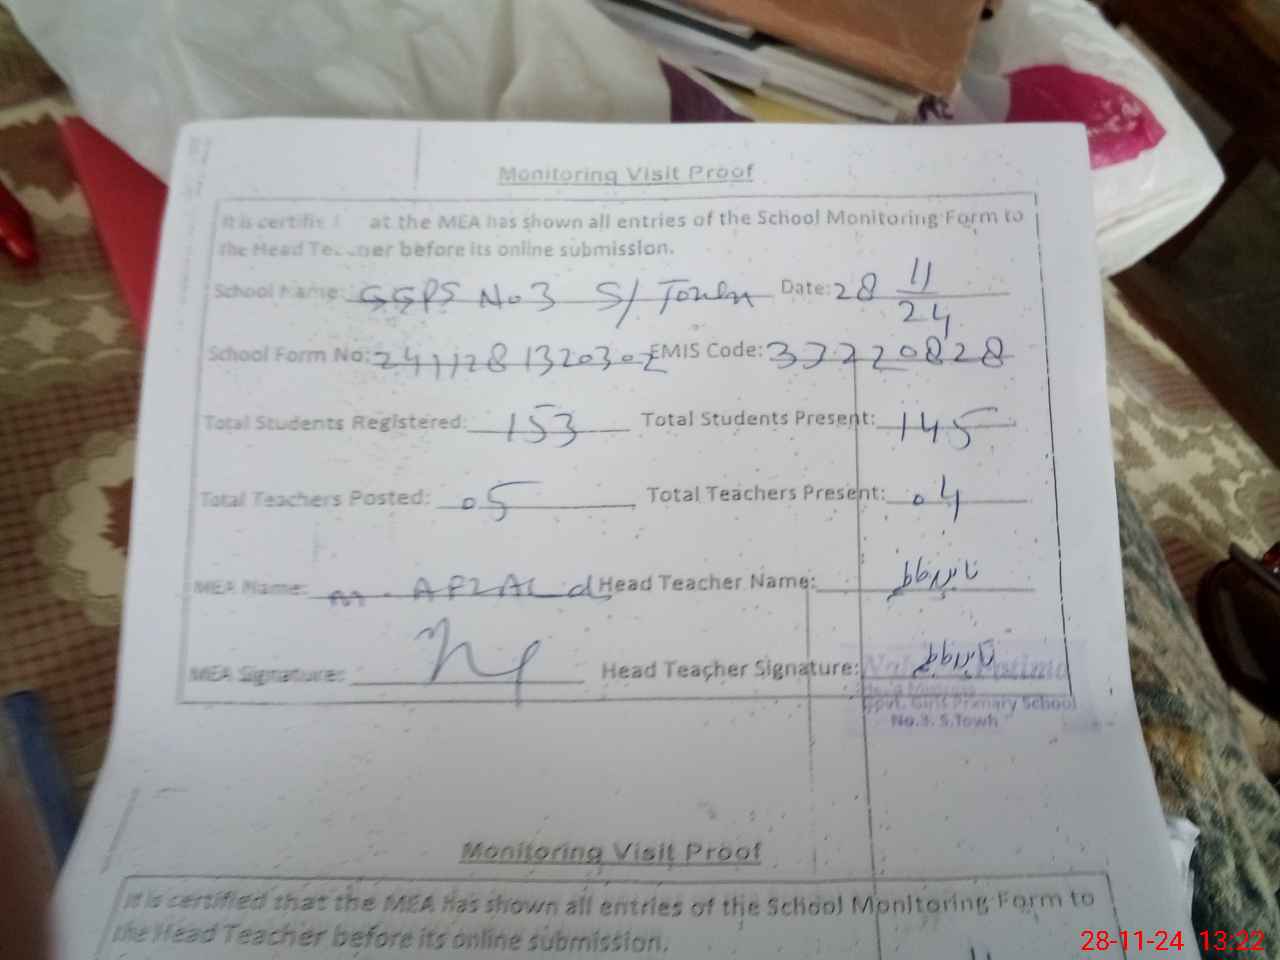 Monitoring Visit Proof
It is certifi at the MEA has shown all entries of the School Monitoring Form to
the Head Te cher before its online submission.
School Name: GGPS No 3 S/ Town Date: 28 11/24
School Form No: EMIS Code: 37220828
Total Students Registered: 153 Total Students Present: 145
Total Teachers Posted: 05 Total Teachers Present: 04
MEA Name: M. AFZAL Head Teacher Name:
MEA Signature: Head Teacher Signature:
Fatima
Govt. Girls Primary School
No.3. S.Town
Monitoring Visit Proof
It is certified that the MEA has shown all entries of the School Monitoring Form to
the Head Teacher before its online submission.
28-11-24 13:22